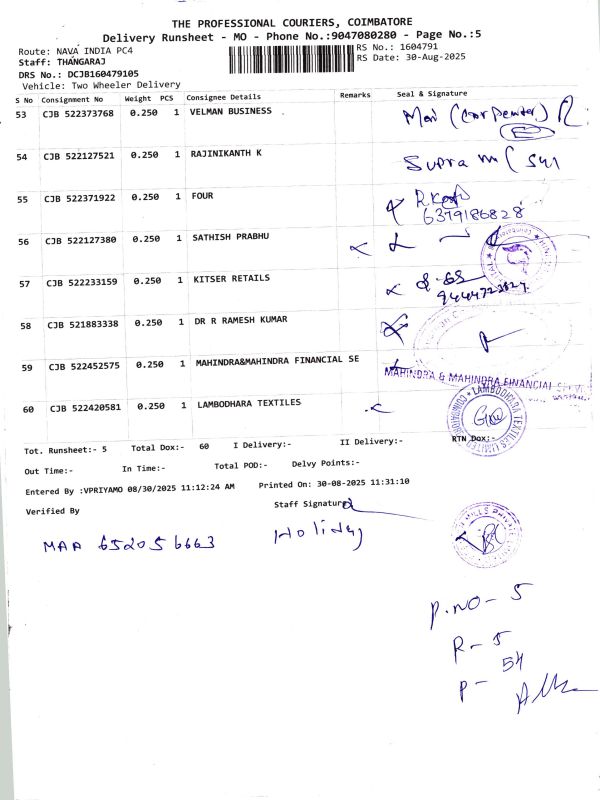 THE PROFESSIONAL COURIERS, COIMBATORE
Delivery Runsheet - MO - Phone No.:9047080280 - Page No.:5
Route: NAVA INDIA PC4
RS No.: 1604791
Staff: THANGARAJ
RS Date: 30-Aug-2025
DRS No.: DCJB160479105
Vehicle: Two Wheeler Delivery
S No Consignment No Weight PCS Consignee Details Remarks Seal & Signature
53 CJB 522373768 0.250 1 VELMAN BUSINESS
54 CJB 522127521 0.250 1 RAJINIKANTH K
55 CJB 522371922 0.250 1 FOUR
6379186828
56 CJB 522127380 0.250 1 SATHISH PRABHU
57 CJB 522233159 0.250 1 KITSER RETAILS
58 CJB 521883338 0.250 1 DR R RAMESH KUMAR
59 CJB 522452575 0.250 1 MAHINDRA&MAHINDRA FINANCIAL SE
MAHINDRA & MAHINDRA FINANCIAL
60 CJB 522420581 0.250 1 LAMBODHARA TEXTILES
LAMBODHARA TEXTILES LIMITED
Tot. Runsheet:- 5 Total Dox:- 60 I Delivery:- II Delivery:- RTN Dox:-
Out Time:- In Time:- Total POD:- Delvy Points:-
Entered By :VPRIYAMO 08/30/2025 11:12:24 AM Printed On: 30-08-2025 11:31:10
Verified By Staff Signature
MAA 652056663 Holiday
P.NO- 5
R- 5
P- 54